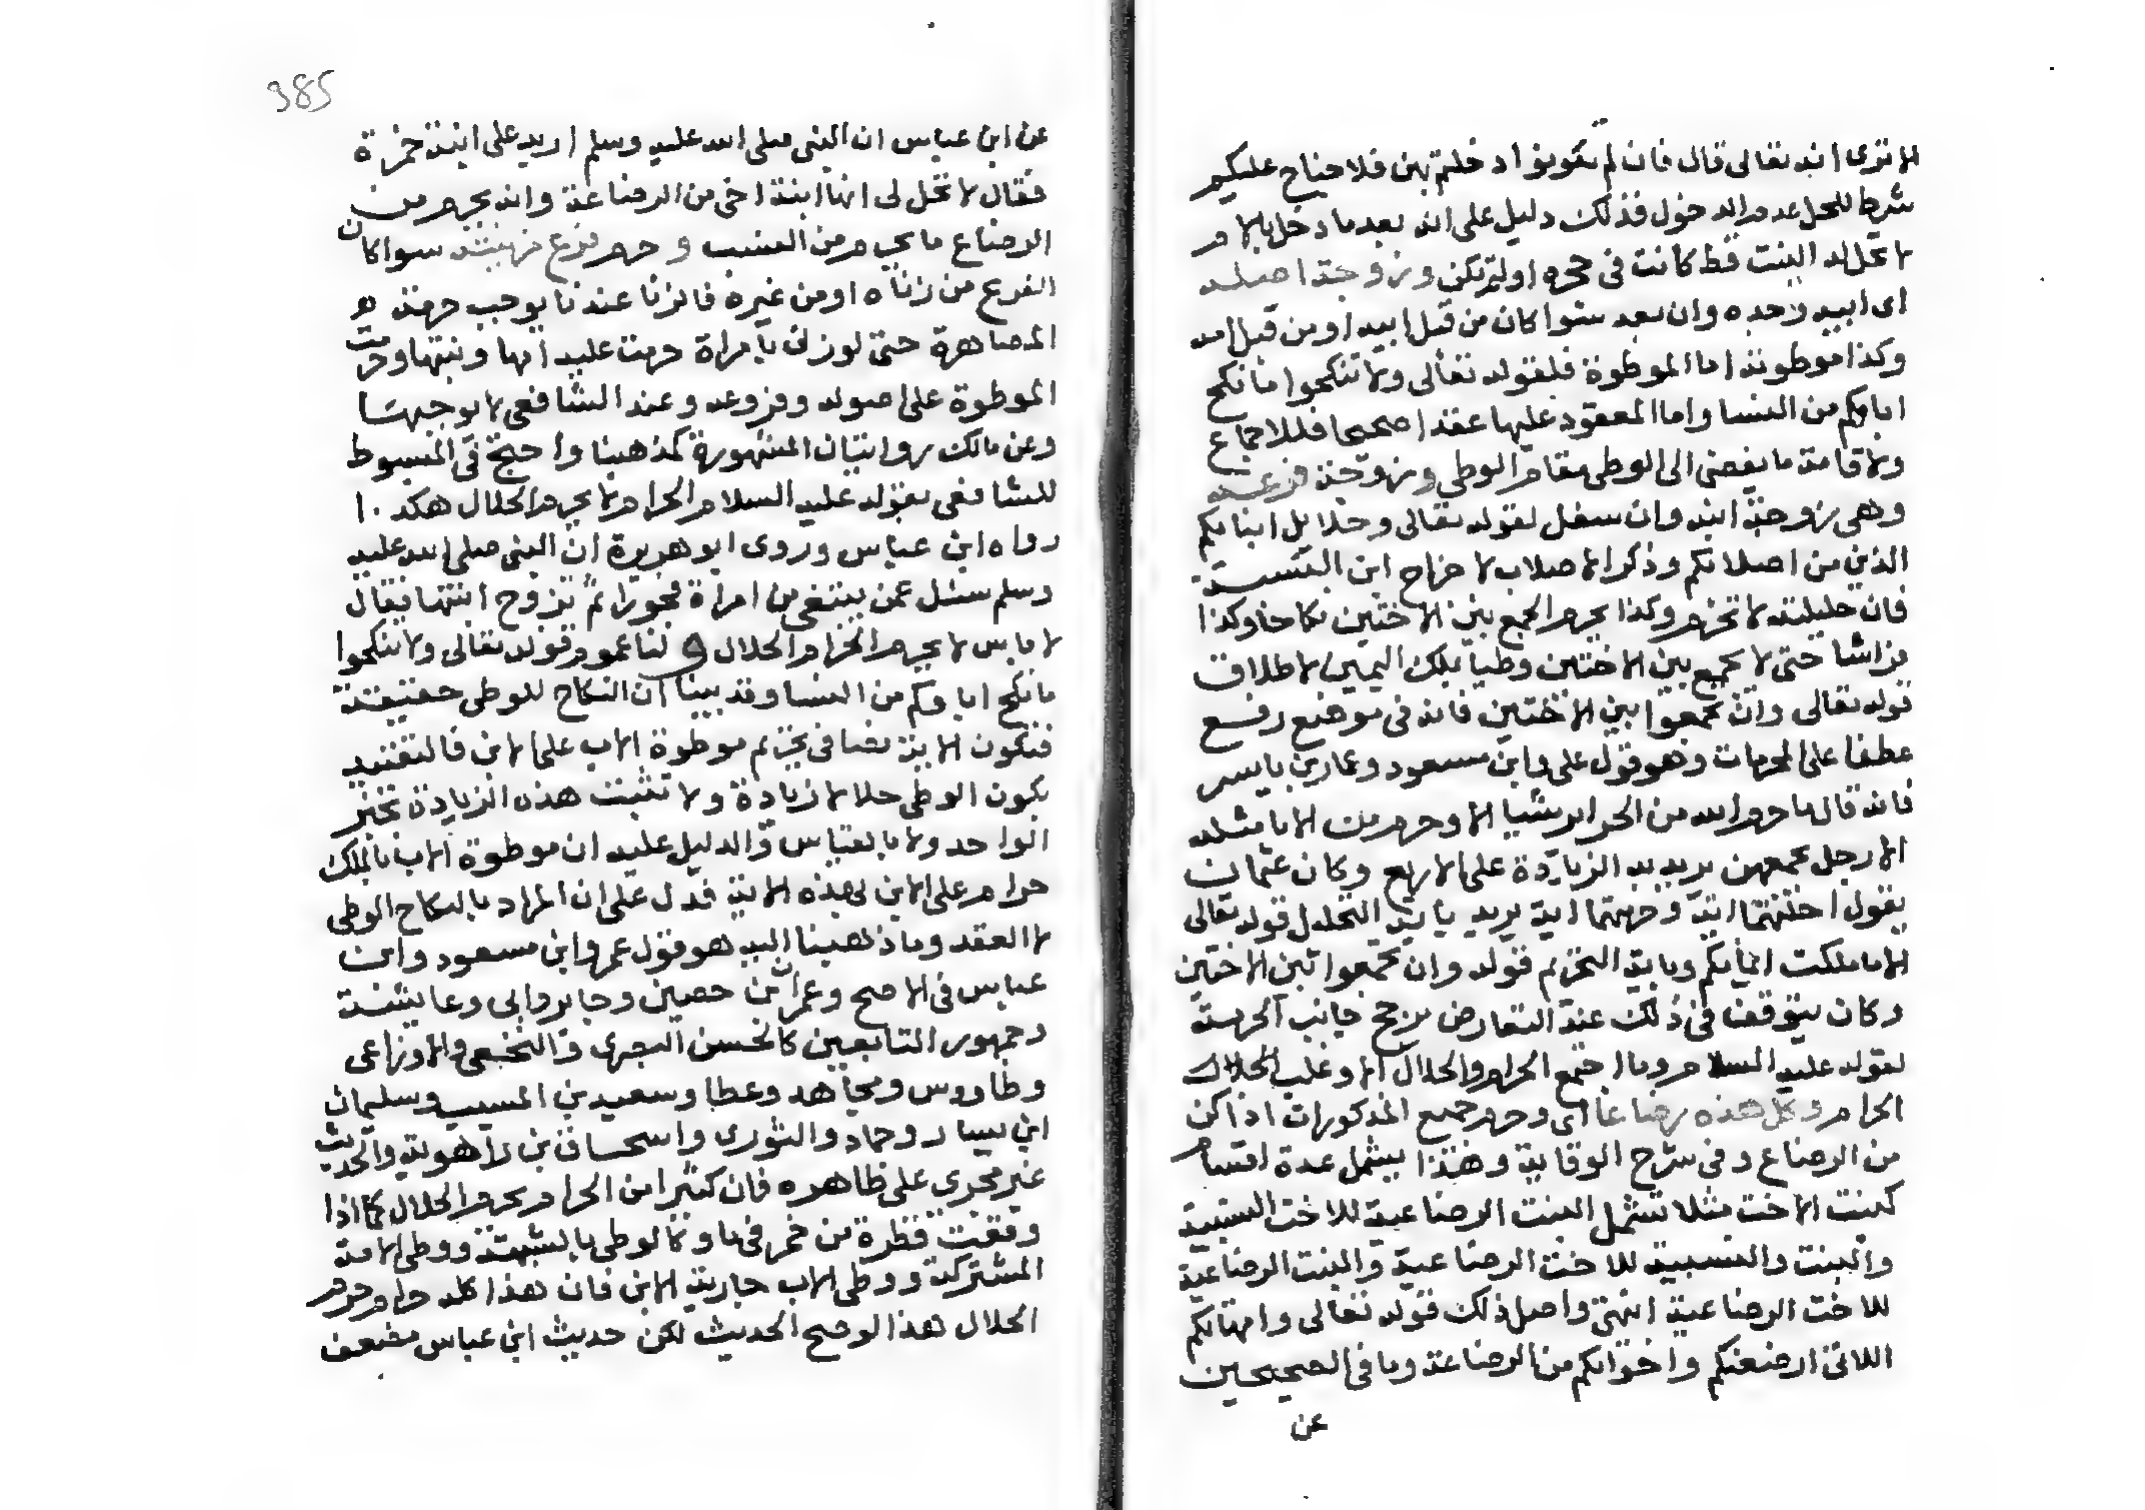 الا ترى انه تعالى قال فان لم تكونوا دخلتم بهن فلا جناح عليكم
شرط للحل عدم الدخول فذلك دليل على انه بعد ما دخل بالام
لا تحل له البنت قط كانت في حجره اولم تكن وزوجة اصله
اى ابيه وجده وان بعد سوا كان من قبل ابيه او من قبل امه
وكذا موطوته اما الموطوة فلقوله تعالى ولا تنكحوا ما نكح
اباوكم من النسا واما المعقود عليها عقدا صحيحا فللاجماع
ولاقامة ما يفضى الى الوطى مقام الوطى وزوجة فرعه
وهى زوجة ابنه وان سفل لقوله تعالى وحلايل ابنايكم
الذين من اصلابكم وذكر الاصلاب لاخراج ابن التبنى
فان حليلته لا تحرم وكذا يحرم الجمع بين الاختين نكاحا وكذا
فراشا حتى لا يجمع بين الاختين وطيا بملك اليمين لاطلاق
قوله تعالى وان تجمعوا بين الاختين فانه في موضع رفع
عطفا على المحرمات وهو قول على وابن مسعود وعمار بن ياسر
فانه قال ما حرم الله من الحراير شيا الا وحرم من الاما مثله
الا رجل يجمعهن يريد به الزيادة على الاربع وكان عثمان
يقول احلتهما اية وحرمتهما اية يريد باية التحليل قوله تعالى
الا ما ملكت ايمانكم وباية التحريم قوله وان تجمعوا بين الاختين
وكان يتوقف في ذلك عند التعارض يرجح جانب الحرمة
لقوله عليه السلام وما اجتمع الحرام والحلال الا وغلب الحلال
الحرام وكل هذه رضاعا اى وحرم جميع المذكورات اذا كن
من الرضاع وفى شرح الوقاية وهذا يشمل عدة اقسام
كبنت الاخت مثلا تشمل البنت الرضاعية للاخت النسبية
والبنت والنسبية للاخت الرضاعية والبنت الرضاعية
للاخت الرضاعية انتهى واصل ذلك قوله تعالى وامهاتكم
اللاتى ارضعنكم واخواتكم من الرضاعة وما في الصحيحين
عن
385
عن ابن عباس ان النبى صلى الله عليه وسلم اريد على ابنة حمزة
فقال لا تحل لى انها ابنة اخى من الرضاعة وانه يحرم من
الرضاع ما يحرم من النسب و حرم فرع مزنيته سوا كان
الفرع من زناه او من غيره فالزنا عندنا يوجب حرمة
المصاهرة حتى لو زنى بامراة حرمت عليه امها وبنتها وحرمت
الموطوة على اصوله وفروعه وعند الشافعى لا يوجبها
وعن مالك روايتان المشهورة كمذهبنا واحتج في المبسوط
للشافعى بقوله عليه السلام الحرام لا يحرم الحلال هكذا
رواه ابن عباس وروى ابو هريرة ان النبى صلى الله عليه
وسلم سئل عمن يبتغى من امراة فجورا ثم تزوج ابنتها فقال
لا باس لا يحرم الحرام الحلال ولنا عموم قوله تعالى ولا تنكحوا
ما نكح اباوكم من النسا وقد بينا ان النكاح للوطى حقيقة
فتكون الاية نصا في تحريم موطوة الاب على الابن فالتقييد
بكون الوطى حلالا زيادة ولا تثبت هذه الزيادة بخبر
الواحد ولا بالقياس والدليل عليه ان موطوة الاب بالملك
حرام على الابن بهذه الاية فدل على ان المراد بالنكاح الوطى
لا العقد وما ذهبنا اليه هو قول عمر وابن مسعود وابن
عباس في الاصح وعمران بن حصين وجابر وابى وعايشة
وجمهور التابعين كالحسن البصرى والنخعى والاوزاعى
وطاووس ومجاهد وعطا وسعيد بن المسيب وسليمان
ابن يسار وحماد والثورى واسحاق بن راهوية والحديث
غير مجرى على ظاهره فان كثيرا من الحرام يحرم الحلال كما اذا
وقعت قطرة من خمر في ما وكالوطى بالشبهة ووطى الامة
المشتركة ووطى الاب جارية الابن فان هذا كله حرام وحرم
الحلال هذا لو صح الحديث لكن حديث ابن عباس مضعف